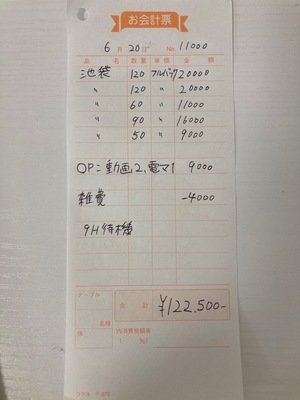 お会計票
6月20日 No. 11000
品名 数量 単価 金額
池袋 120 フルバック 20000
〃 120 〃 20000
〃 60 〃 11000
〃 90 〃 16000
〃 50 〃 9000
OP=動画2、電マ1 9000
雑費 -4000
9H待機
テーブル
名様
合計 ¥122,500-
係
内消費税額等
( %)